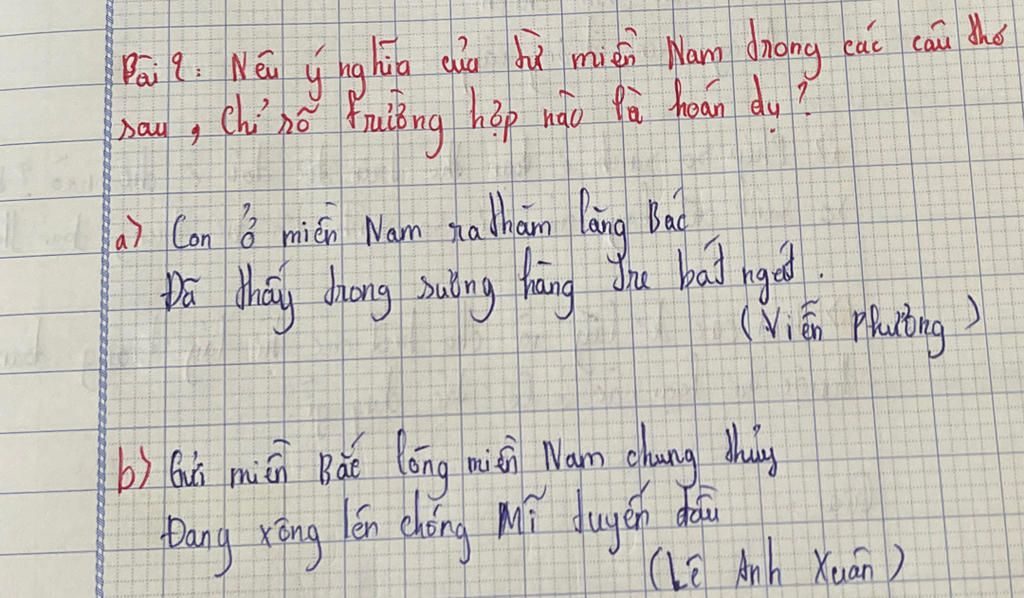 Bài 2: Nêu ý nghĩa của từ miền Nam trong các câu thơ
sau, chỉ rõ trường hợp nào là hoán dụ?
a) Con ở miền Nam ra thăm lăng Bác
Đã thấy trong sương hàng tre bát ngát.
(Viễn Phương)
b) Gửi miền Bắc lòng miền Nam chung thủy
Đang xông lên chống Mĩ tuyến đầu
(Lê Anh Xuân)